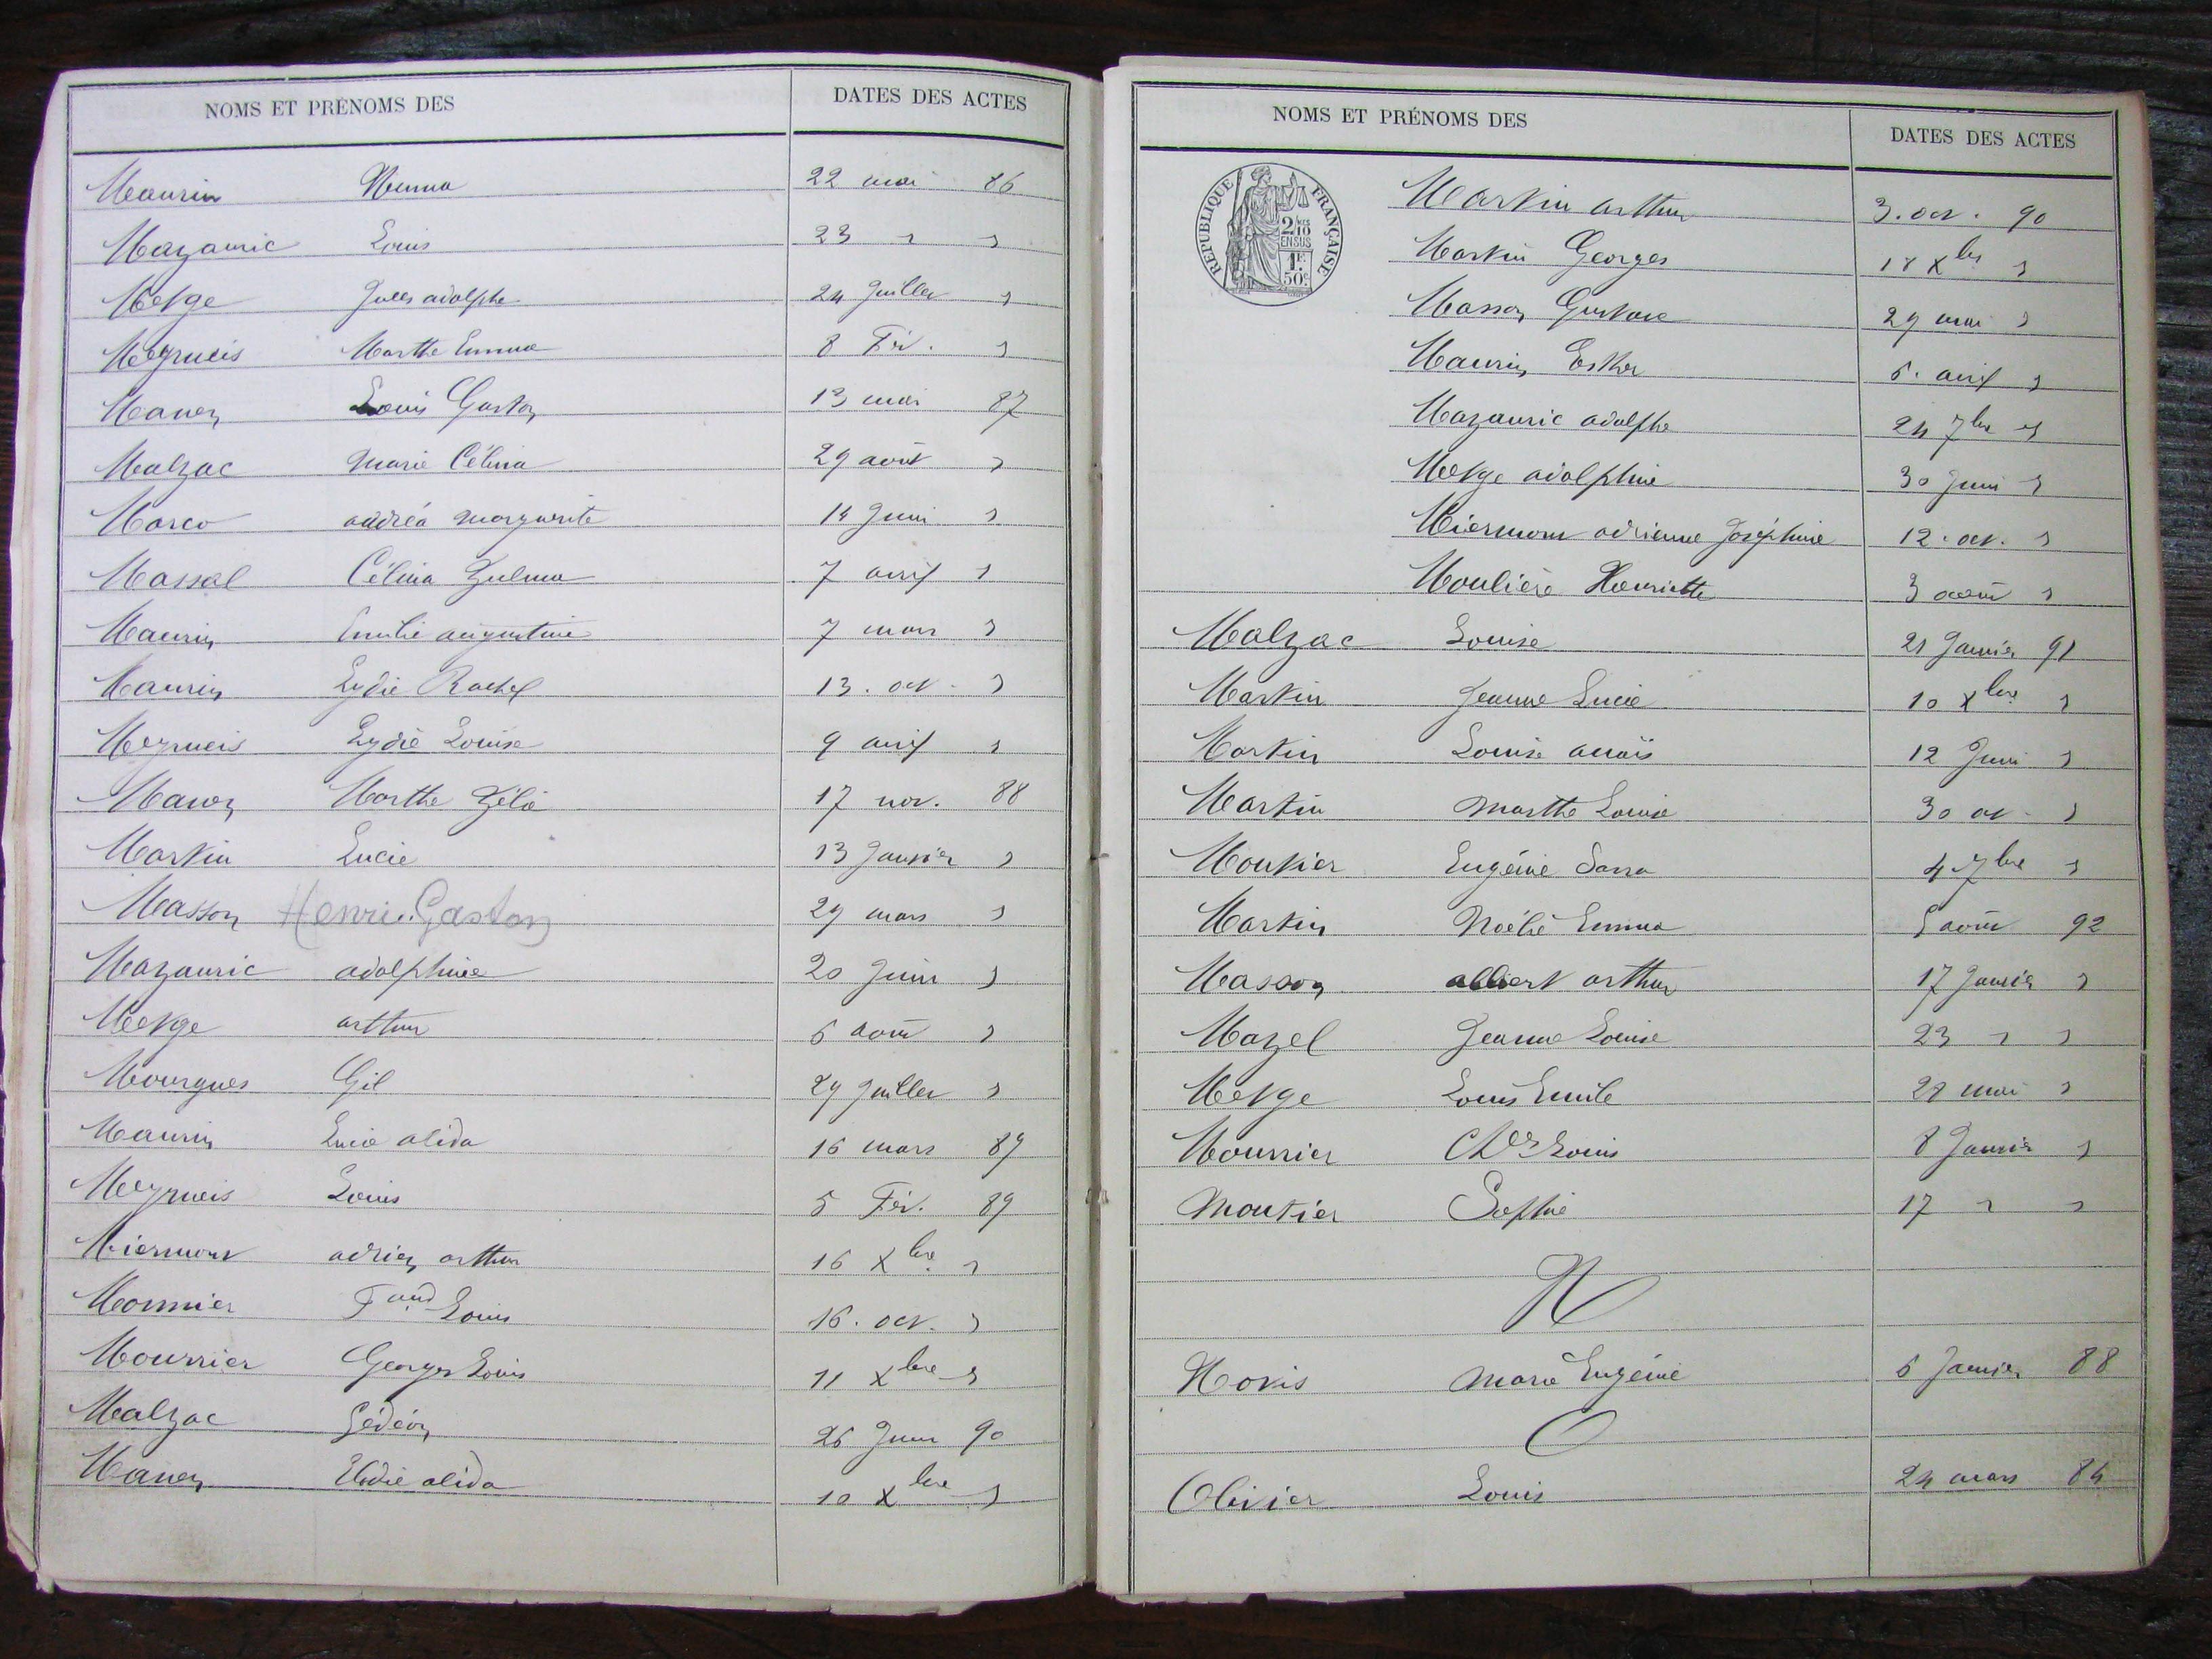 NOMS ET PRÉNOMS DES DATES DES ACTES
Maurin Numa 22 mai 86
Mazauric Louis 23 " "
Metge Jules adolphe 24 Juillet "
Meyrueis Marthe Emma 8 Fév. "
Manen Louis Gaston 13 mai 87
Malzac Marie Célina 29 août "
Marco andréa Marguerite 14 Juin "
Massal Célina Zulma 7 avril "
Maurin Emilie augustine 7 mars "
Maurin Lydie Rachel 13. oct. "
Meyrueis Lydie Louise 9 avril "
Manen Marthe Zélie 17 nov. 88
Martin Lucie 13 Janvier "
Masson Henri Gaston 29 mars "
Mazauric adolphine 20 Juin "
Metge arthur 6 août "
Mourgues Gil 29 Juillet "
Maurin Lucie alida 16 mars 89
Meyrueis Louis 5 Fév. 89
Miermont adrien arthur 16 Xbre "
Monnier Fand Louis 16. oct. "
Mourrier Georges Louis 11 Xbre "
Malzac Gédéon 26 Juin 90
Manen Elodie alida 10 Xbre "
NOMS ET PRÉNOMS DES DATES DES ACTES
RÉPUBLIQUE FRANÇAISE
2/10
EN SUS
1F.
50c.
Martin arthur 3. oct. 90
Martin Georges 18 Xbre "
Masson Gustave 29 mai "
Maurin Esther 6. avril "
Mazauric adolphe 24 7bre "
Metge adolphine 30 Juin "
Miermont adrienne Joséphine 12. oct. "
Moulière Henriette 3 août "
Malzac Louise 21 Janvier 91
Martin Jeanne Lucie 10 Xbre "
Martin Louise anaïs 12 Juin "
Martin Marthe Louise 30 oct. "
Moutier Eugénie Sara 4 7bre "
Martin Noélie Emma 5 août 92
Masson albert arthur 17 Janvier "
Mazel Jeanne Louise 23 " "
Metge Louis Emile 28 mai "
Mourrier Ches Louis 8 Janvier "
Moutier Sophie 17 " "
N
Novis Marie Eugénie 6 Janvier 88
O
Olivier Louis 24 mars 84